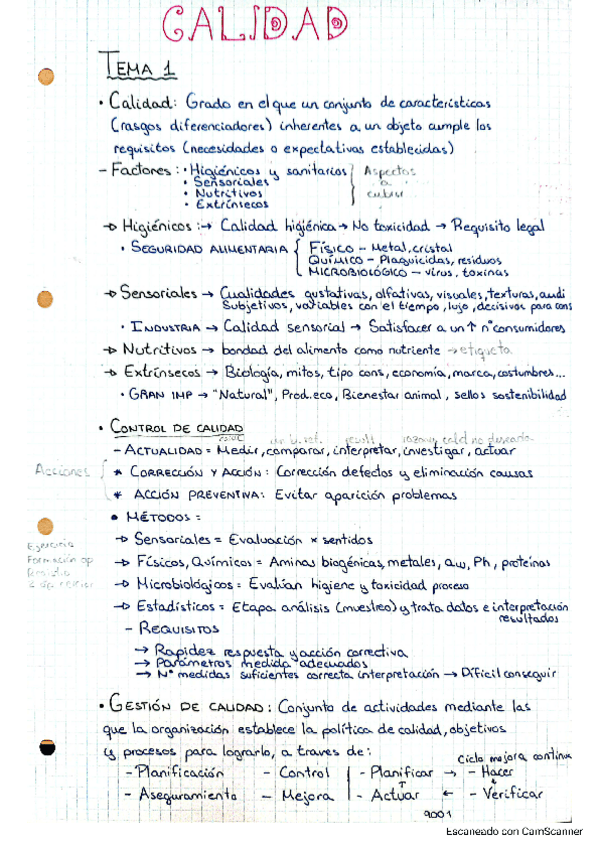 CALIDAD
TEMA 1
• Calidad: Grado en el que un conjunto de características
(rasgos diferenciadores) inherentes a un objeto cumple los
requisitos (necesidades o expectativas establecidas)
- Factores: • Higiénicos y sanitarios } Aspectos
• Sensoriales a
• Nutritivos cubrir
• Extrínsecos
→ Higiénicos: → Calidad higiénica → No toxicidad → Requisito legal
• SEGURIDAD ALIMENTARIA { FÍSICO - Metal, cristal
QUÍMICO - Plaguicidas, residuos
MICROBIOLÓGICO - virus, toxinas
→ Sensoriales → Cualidades gustativas, olfativas, visuales, texturas, audi
Subjetivos, variables con el tiempo, lujo, decisivos para cons
• INDUSTRIA → Calidad sensorial → Satisfacer a un ↑ nº consumidores
→ Nutritivos → bondad del alimento como nutriente → etiqueta
→ Extrínsecos → Biología, mitos, tipo cons, economía, marca, costumbres...
• GRAN IMP → "Natural", Prod.eco, Bienestar animal, sellos sostenibilidad
• CONTROL DE CALIDAD
result razonar calid no deseada
- ACTUALIDAD = Medir, comparar, interpretar, investigar, actuar
Acciones { * CORRECCIÓN Y ACCIÓN: Corrección defectos y eliminación causas
* ACCIÓN PREVENTIVA: Evitar aparición problemas
• MÉTODOS =
→ Sensoriales = Evaluación x sentidos
Formación op
→ Físicos, Químicos = Aminas biogénicas, metales, aw, Ph, proteínas
→ Microbiológicos = Evalúan higiene y toxicidad proceso
→ Estadísticos = Etapa análisis (muestreo) y trata datos e interpretación
resultados
- REQUISITOS
→ Rapidez respuesta y acción correctiva
→ Parámetros medida adecuados
→ Nº medidas suficientes correcta interpretación → Difícil conseguir
• GESTIÓN DE CALIDAD: Conjunto de actividades mediante las
que la organización establece la política de calidad, objetivos
y procesos para lograrlo, a través de:
Ciclo mejora continua
- Planificación - Control | - Planificar → - Hacer
↑ ↓
- Aseguramiento - Mejora | - Actuar ← - Verificar
9001
Escaneado con CamScanner